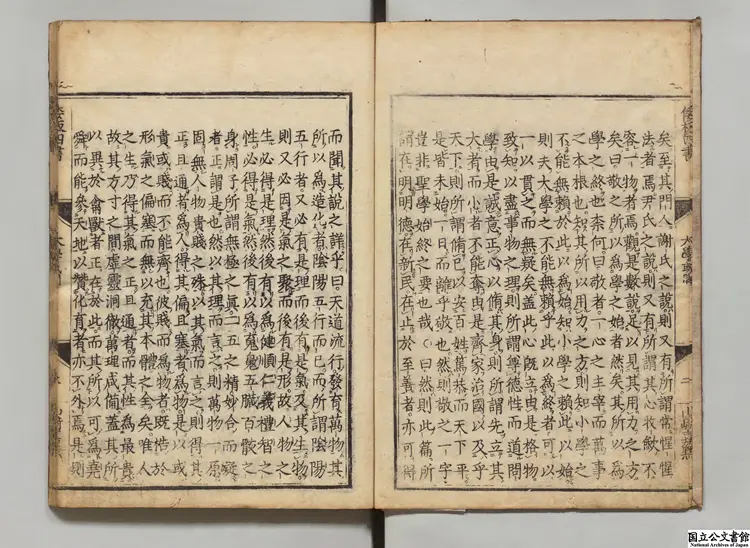 倭板四書
大學或問
二
矣至其門人謝氏之說則又有所謂常惺惺
法者焉尹氏之說則又有所謂其心收斂不
容一物者焉觀是數說足以見其用力之方
矣曰敬之所以爲學之始者然矣其所以爲
學之終也柰何曰敬者一心之主宰而萬事
之本根也知其所以用力之方則知小學之
不能無賴於此以爲始知小學之賴此以始
則夫大學之不能無賴乎此以爲終者可以
一以貫之而無疑矣蓋此心既立由是格物
致知以盡事物之理則所謂尊德性而道問
學由是誠意正心以脩其身則所謂先立其
大者而小者不能奪由是齊家治國以及乎
天下則所謂脩己以安百姓篤恭而天下平
是皆未始一日而離乎敬也然則敬之一字
豈非聖學始終之要也哉○曰然則此篇所
謂在明明德在新民在止於至善者亦可得
而聞其說之詳乎曰天道流行發育萬物其
所以爲造化者陰陽五行而已而所謂陰陽
五行者又必有是理而後有是氣及其生物
則又必因是氣之聚而後有是形故人物之
生必得是理然後有以爲健順仁義禮智之
性必得是氣然後有以爲魂魄五臟百骸之
身周子所謂無極之眞二五之精妙合而凝
者正謂是也然以其理而言之則萬物一原
固無人物貴賤之殊以其氣而言之則得其
正且通者爲人得其偏且塞者爲物是以或
貴或賤而不能齊也彼賤而爲物者既梏於
形氣之偏塞而無以充其本體之全矣唯人
之生乃得其氣之正且通者而其性爲最貴
故其方寸之間虛靈洞徹萬理咸備蓋其所
以異於禽獸者正在於此而其所以可爲堯
舜而能參天地以贊化育者亦不外焉是則
倭板四書
国立公文書館
National Archives of Japan